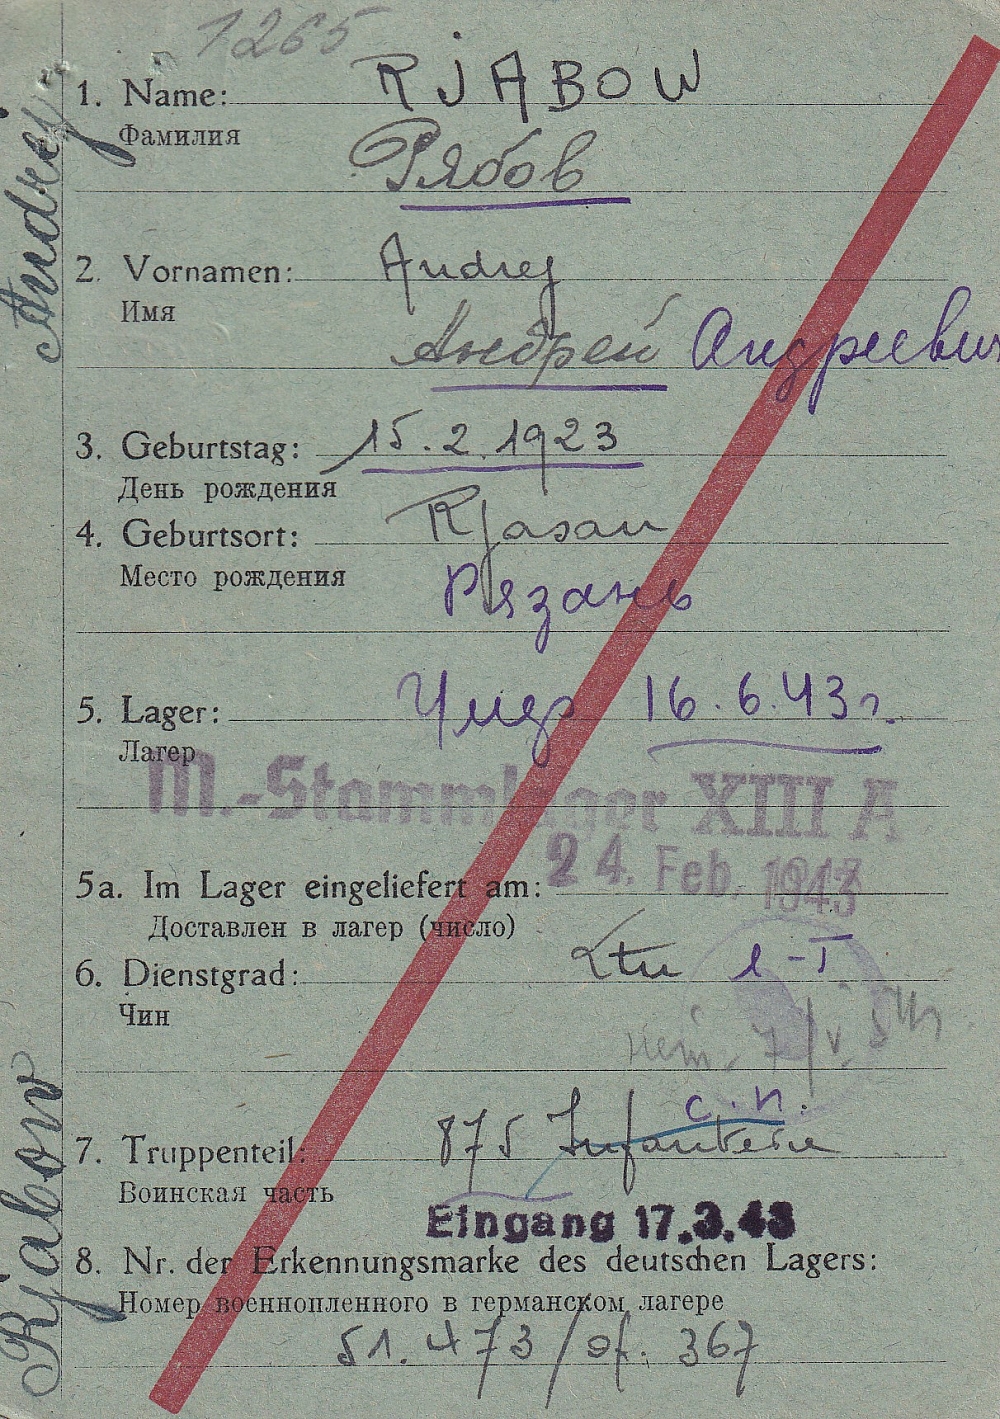 1265
1. Name: RJABOW
Фамилия
Рябов
2. Vornamen: Andrej
Имя
Андрей Андреевич
3. Geburtstag: 15.2.1923
День рождения
4. Geburtsort: Rjasan
Место рождения
Рязань
5. Lager: Умер 16.6.43г.
Лагер
M.-Stammlager XIII A
24. Feb. 1943
5a. Im Lager eingeliefert am:
Доставлен в лагер (число)
6. Dienstgrad: Ltn л-т
Чин
с.п.
7. Truppenteil: 875 Infanterie
Воинская часть
Eingang 17.3.43
8. Nr. der Erkennungsmarke des deutschen Lagers:
Номер военнопленного в германском лагере
51.473/of. 367
Rjabow Andrej